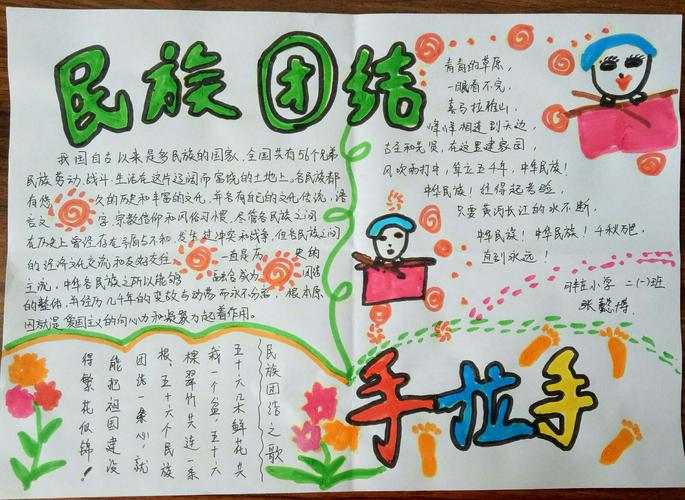 民族团结
我国自古以来是多民族的国家,全国共有56个兄弟
民族劳动、战斗、生活在这片辽阔而富饶的土地上。各民族都
有悠久的历史和丰富的文化,并各有自己的文化传统,语
言文字、宗教信仰和风俗习惯,尽管各民族之间
在历史上曾经存在矛盾与不和,发生过冲突和战争,但各民族之间
的经济文化交流和友好交往一直是历史的
主流,中华各民族之所以能够融合成为团结
的整体,并经历几千年的变故与动荡而永不分离,根本原
因就是爱国主义的向心力和凝聚力起着作用。
青青的草原,
一眼看不完,
喜马拉雅山,
峰峰相连到天边,
古圣和先贤,在这里建家园,
风吹雨打中,耸立五千年,中华民族!
中华民族!经得起考验,
只要黄河长江的水不断,
中华民族!中华民族!千秋万世,
直到永远!
小学二(一)班
张懿博
民族团结之歌
五十六几木鲜花共
栽一个盆,五十六
棵翠竹共连一条
根、五十六个民族
团结一条心,就
能把祖国建设
得繁花似锦!
手拉手